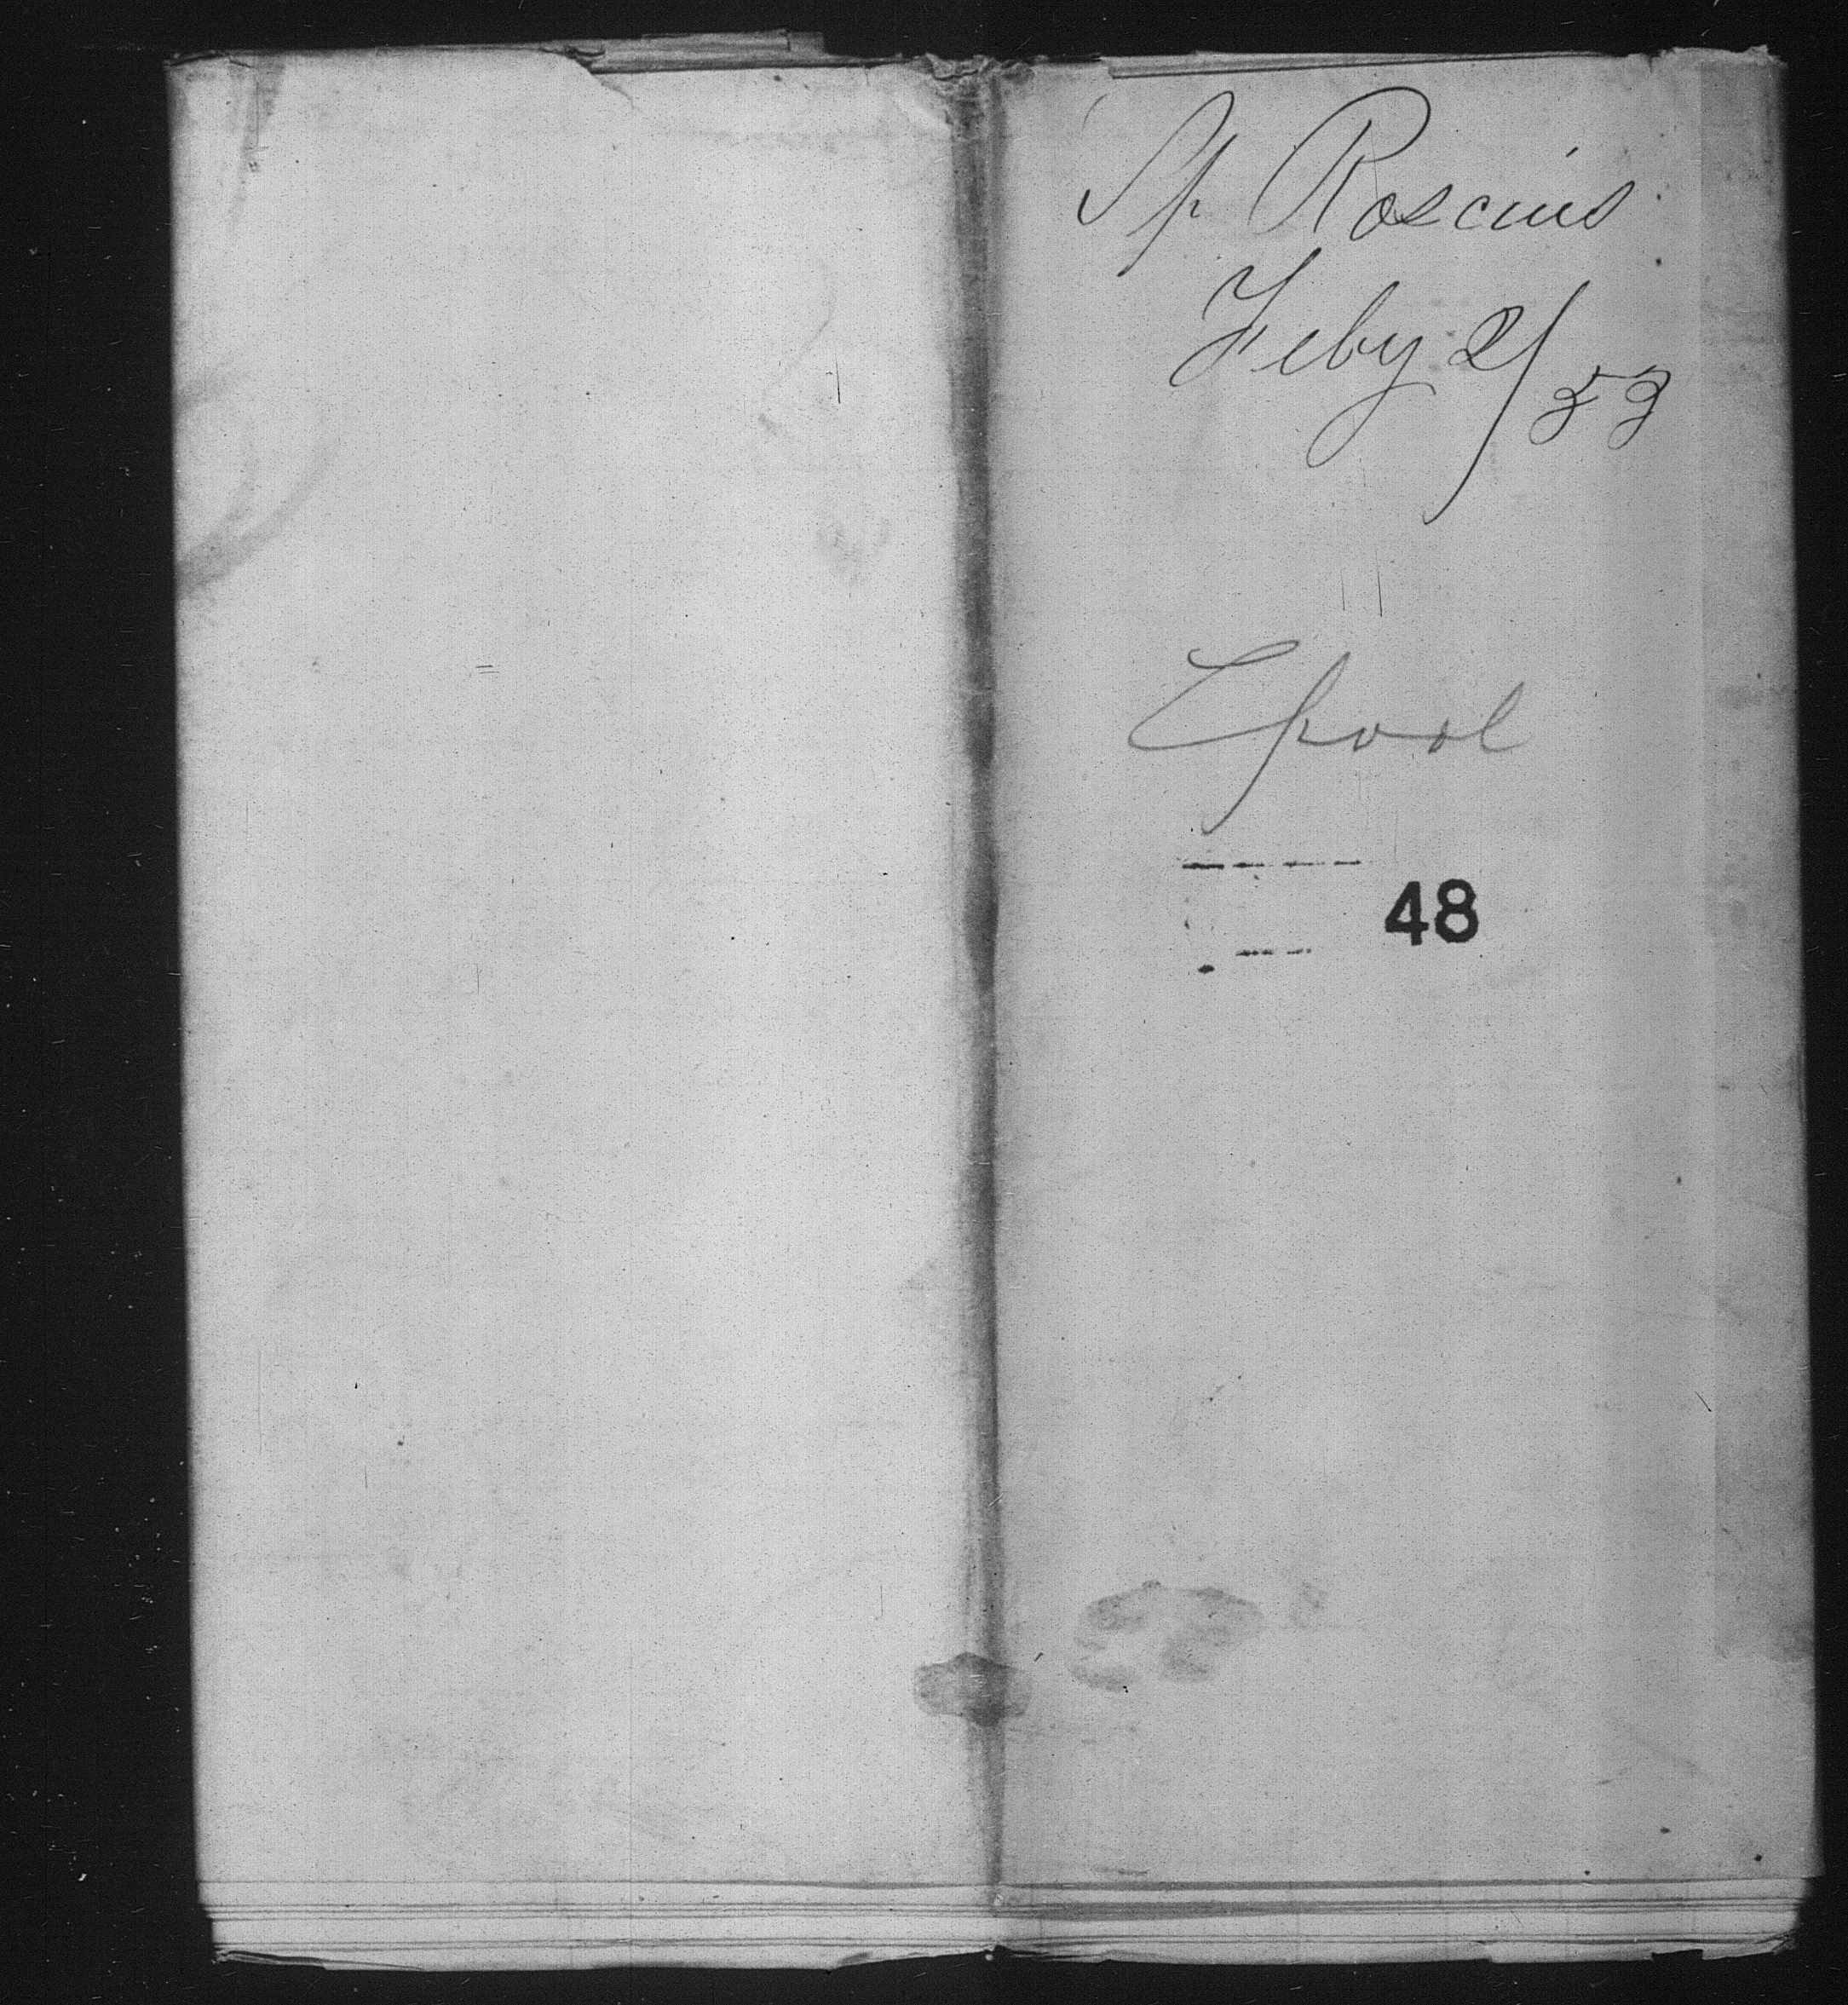 Sp Roscius
Feby 2/53
Lpool
48